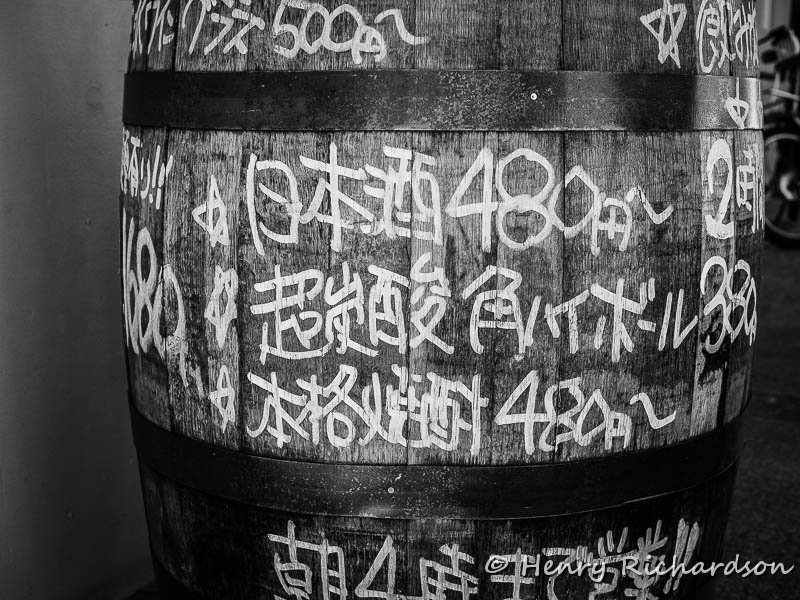 グラス500円〜 ☆飲み
有り!! ☆日本酒480円〜 2時
680 ☆超炭酸角ハイボール 380
☆本格焼酎480円〜
朝4時まで営業!!
© Henry Richardson